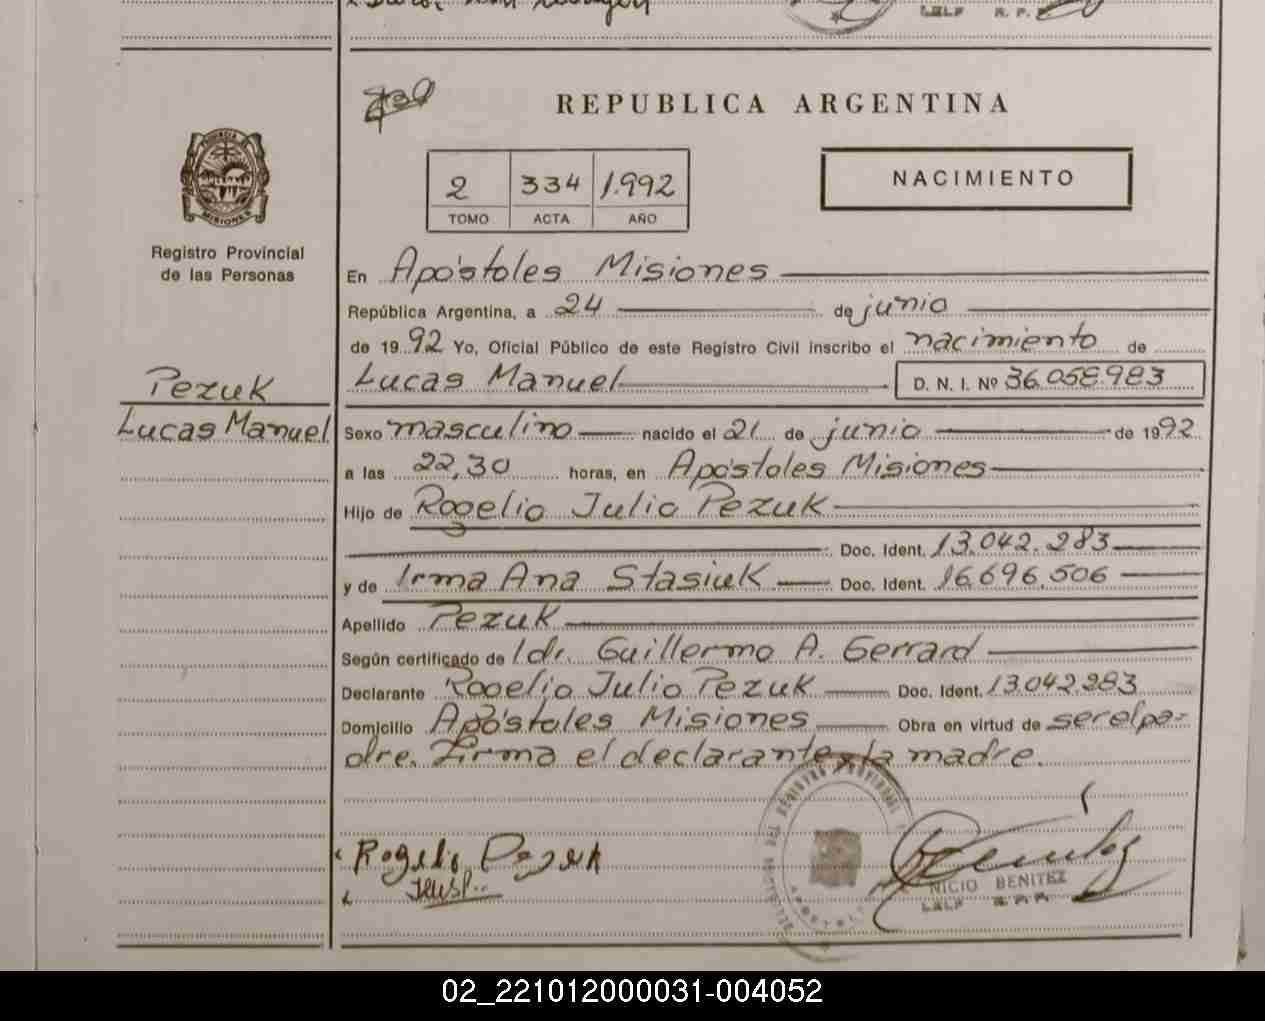 REPUBLICA ARGENTINA
2 334 1.992
TOMO ACTA AÑO
NACIMIENTO
PROVINCIA DE
MISIONES
Registro Provincial
de las Personas
En Apóstoles Misiones
República Argentina, a 24 de junio
de 1992 Yo, Oficial Público de este Registro Civil inscribo el nacimiento de
Lucas Manuel D. N. I. Nº 36.058.983
Pezuk
Lucas Manuel
Sexo masculino nacido el 21 de junio de 1992
a las 22,30 horas, en Apóstoles Misiones
Hijo de Rogelio Julio Pezuk
Doc. Ident. 13.042.283
y de Irma Ana Stasiuk Doc. Ident. 16.696.506
Apellido Pezuk
Según certificado de l dr. Guillermo A. Gerrard
Declarante Rogelio Julio Pezuk Doc. Ident. 13.042.283
Domicilio Apóstoles Misiones Obra en virtud de ser el pa-
dre. Firma el declarante x la madre.
Rogelio Pezuk
NICIO BENITEZ
02_221012000031-004052